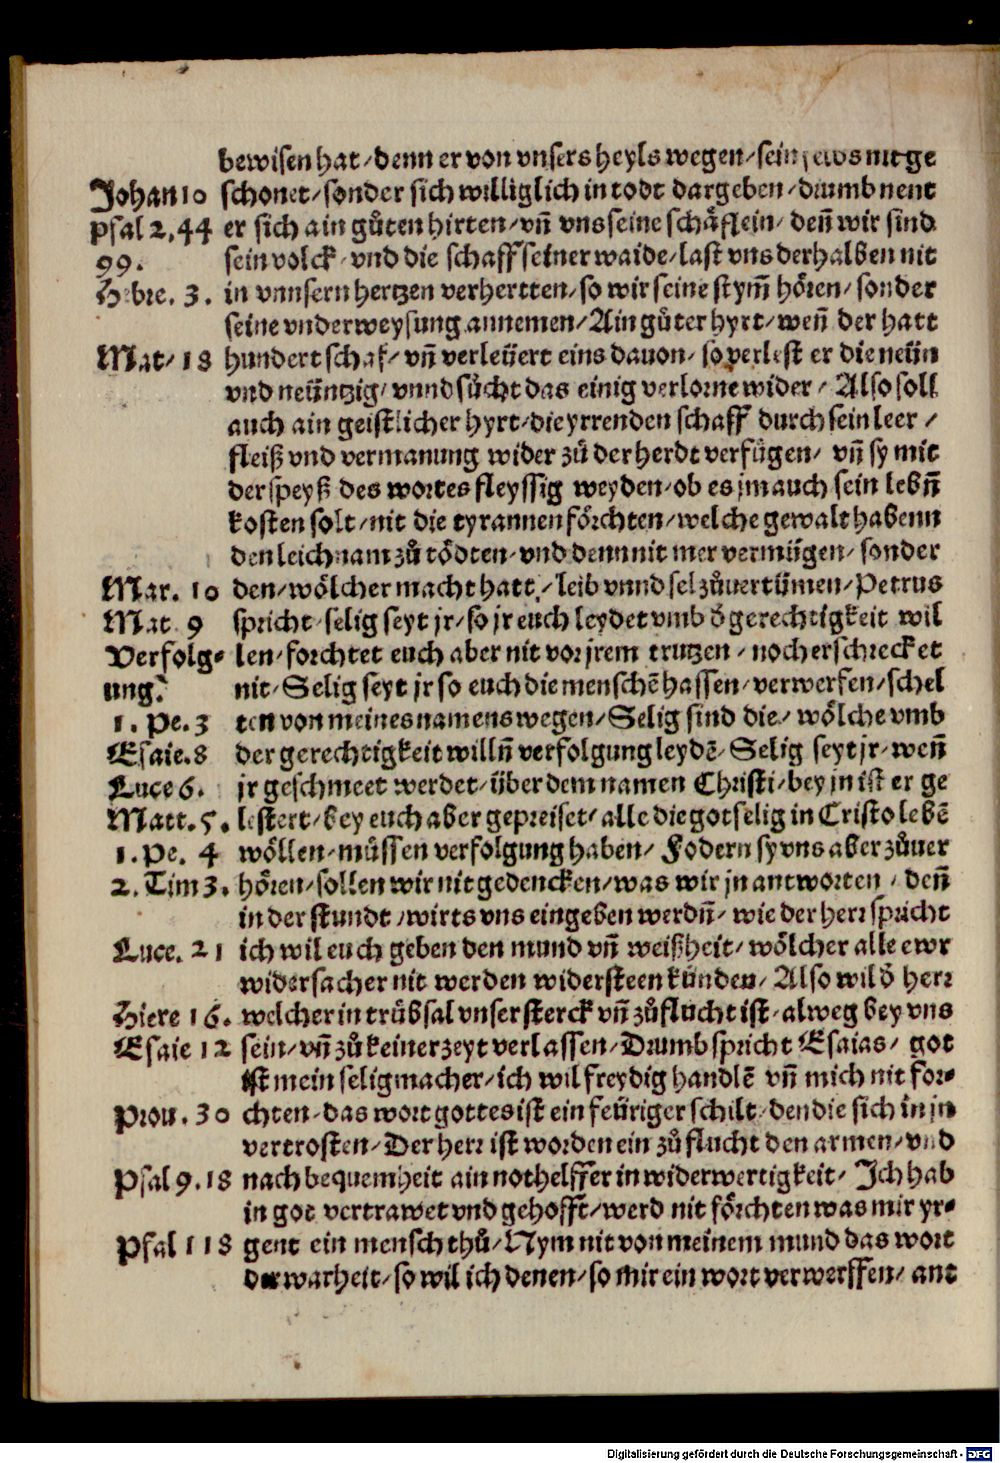 bewisen hat / denn er von vnsers heyls wegen / sein nit ge
Johan 10 schonet / sonder sich williglich in todt dargeben / drumb nent
psal 2.44 er sich ain gůten hirten / vñ vns seine schåflein / deñ wir sind
99. sein volck / vnd die schaff seiner waide / last vns derhalben nit
Hebre. 3. in vnnsern hertzen verhertten / so wir seine stym̃ hören / sonder
seine vnderweysung annemen / Ain gůter hyrt / weñ der hatt
Mat / 18 hundert schaf / vñ verleüert eins dauon / so verlest er die neün
vnd neüntzig / vnnd sůcht das einig verlorne wider / Also soll
auch ain geistlicher hyrt / die yrrenden schaff durch sein leer /
fleiß vnd vermanung wider zů der herdt verfügen / vñ sy mit
der speyß des wortes fleyssig weyden / ob es jm auch sein lebñ
kosten solt / nit die tyrannen förchten / welche gewalt habenn
den leichnam zů tödten / vnd dennnit mer vermügen / sonder
Mar. 10 den / wölcher macht hatt / leib vnnd sel zůuertümen / Petrus
Mat 9 spricht / selig seyt jr / so jr euch leydet vmb d̕ gerechtigkeit wil
Verfolg⸗ len / forchtet euch aber nit vor jrem trutzen / noch erschrecket
ung. nit / Selig seyt jr so euch die menschē hassen / verwerfen / schel
1. Pe. 3 ten von meines namens wegen / Selig sind die / wölche vmb
Esaie. 8 der gerechtigkeit willñ verfolgung leydē / Selig seyt jr / weñ
Luce 6. jr geschmeet werdet / über dem namen Christi / bey jn ist er ge
Matt. 5. lestert / bey euch aber gepreiset / alle die gotselig in Cristo lebē
1. Pe. 4 wöllen / müssen verfolgung haben / Fodern sy vns aber zůuer
2. Tim 3. hören / sollen wir nit gedencken / was wir jn antworten / deñ
in der stundt / wirts vns eingeben werdñ / wie der herr spricht
Luce. 21 ich wil euch geben den mund vñ weißheit / wölcher alle ewr
widersacher nit werden widersteen künden / Also wil d̕ herr
Hiere 16. welcher in trübsal vnser sterck vñ zůflucht ist / alweg bey vns
Esaie 12 sein / vñ zů keiner zeyt verlassen / Drumb spricht Esaias / got
ist mein seligmacher / ich wil freydig handlē vñ mich nit for⸗
Prou. 30 chten / das wort gottes ist ein feüriger schilt / den die sich in jn
vertrosten / Der herr ist worden ein zůflucht den armen / vnd
Psal 9.18 nach bequemheit ain nothelffer in widerwertigkeit / Ich hab
in got vertrawet vnd gehofft / werd nit förchten was mir yr⸗
Psal 118 gent ein mensch thů / Nym nit von meinem mund das wort
der warheit / so wil ich denen / so mir ein wort verwerffen / ant
Digitalisierung gefördert durch die Deutsche Forschungsgemeinschaft - DFG